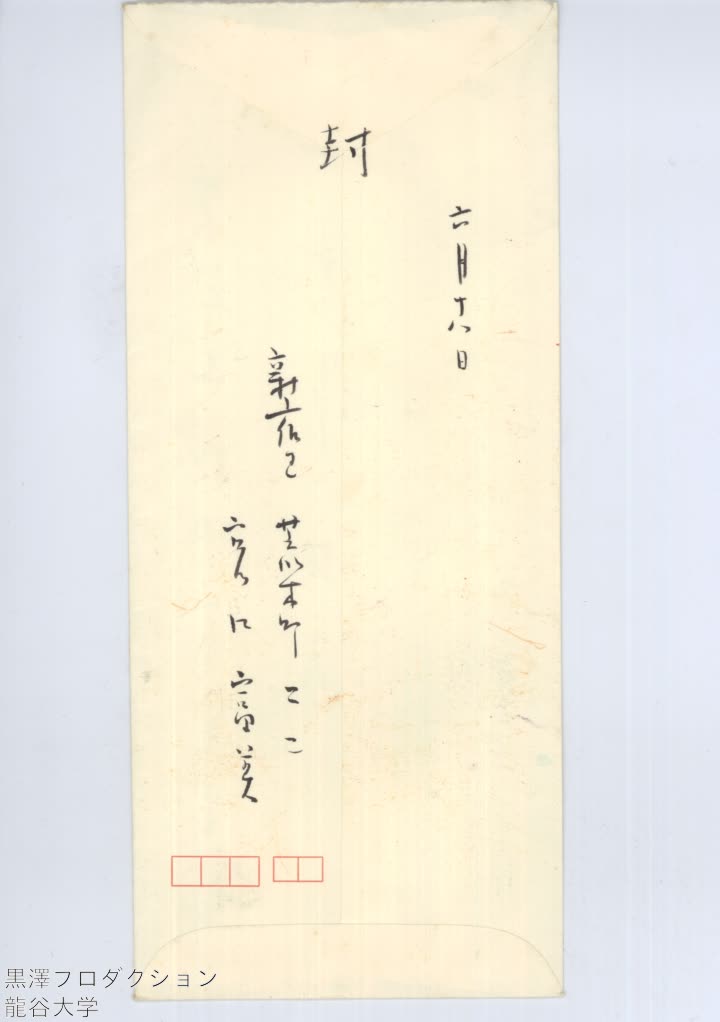 封
六月十八日
新宿区 荒木町二二
宮口 富美
黒澤フロダクション
龍谷大学